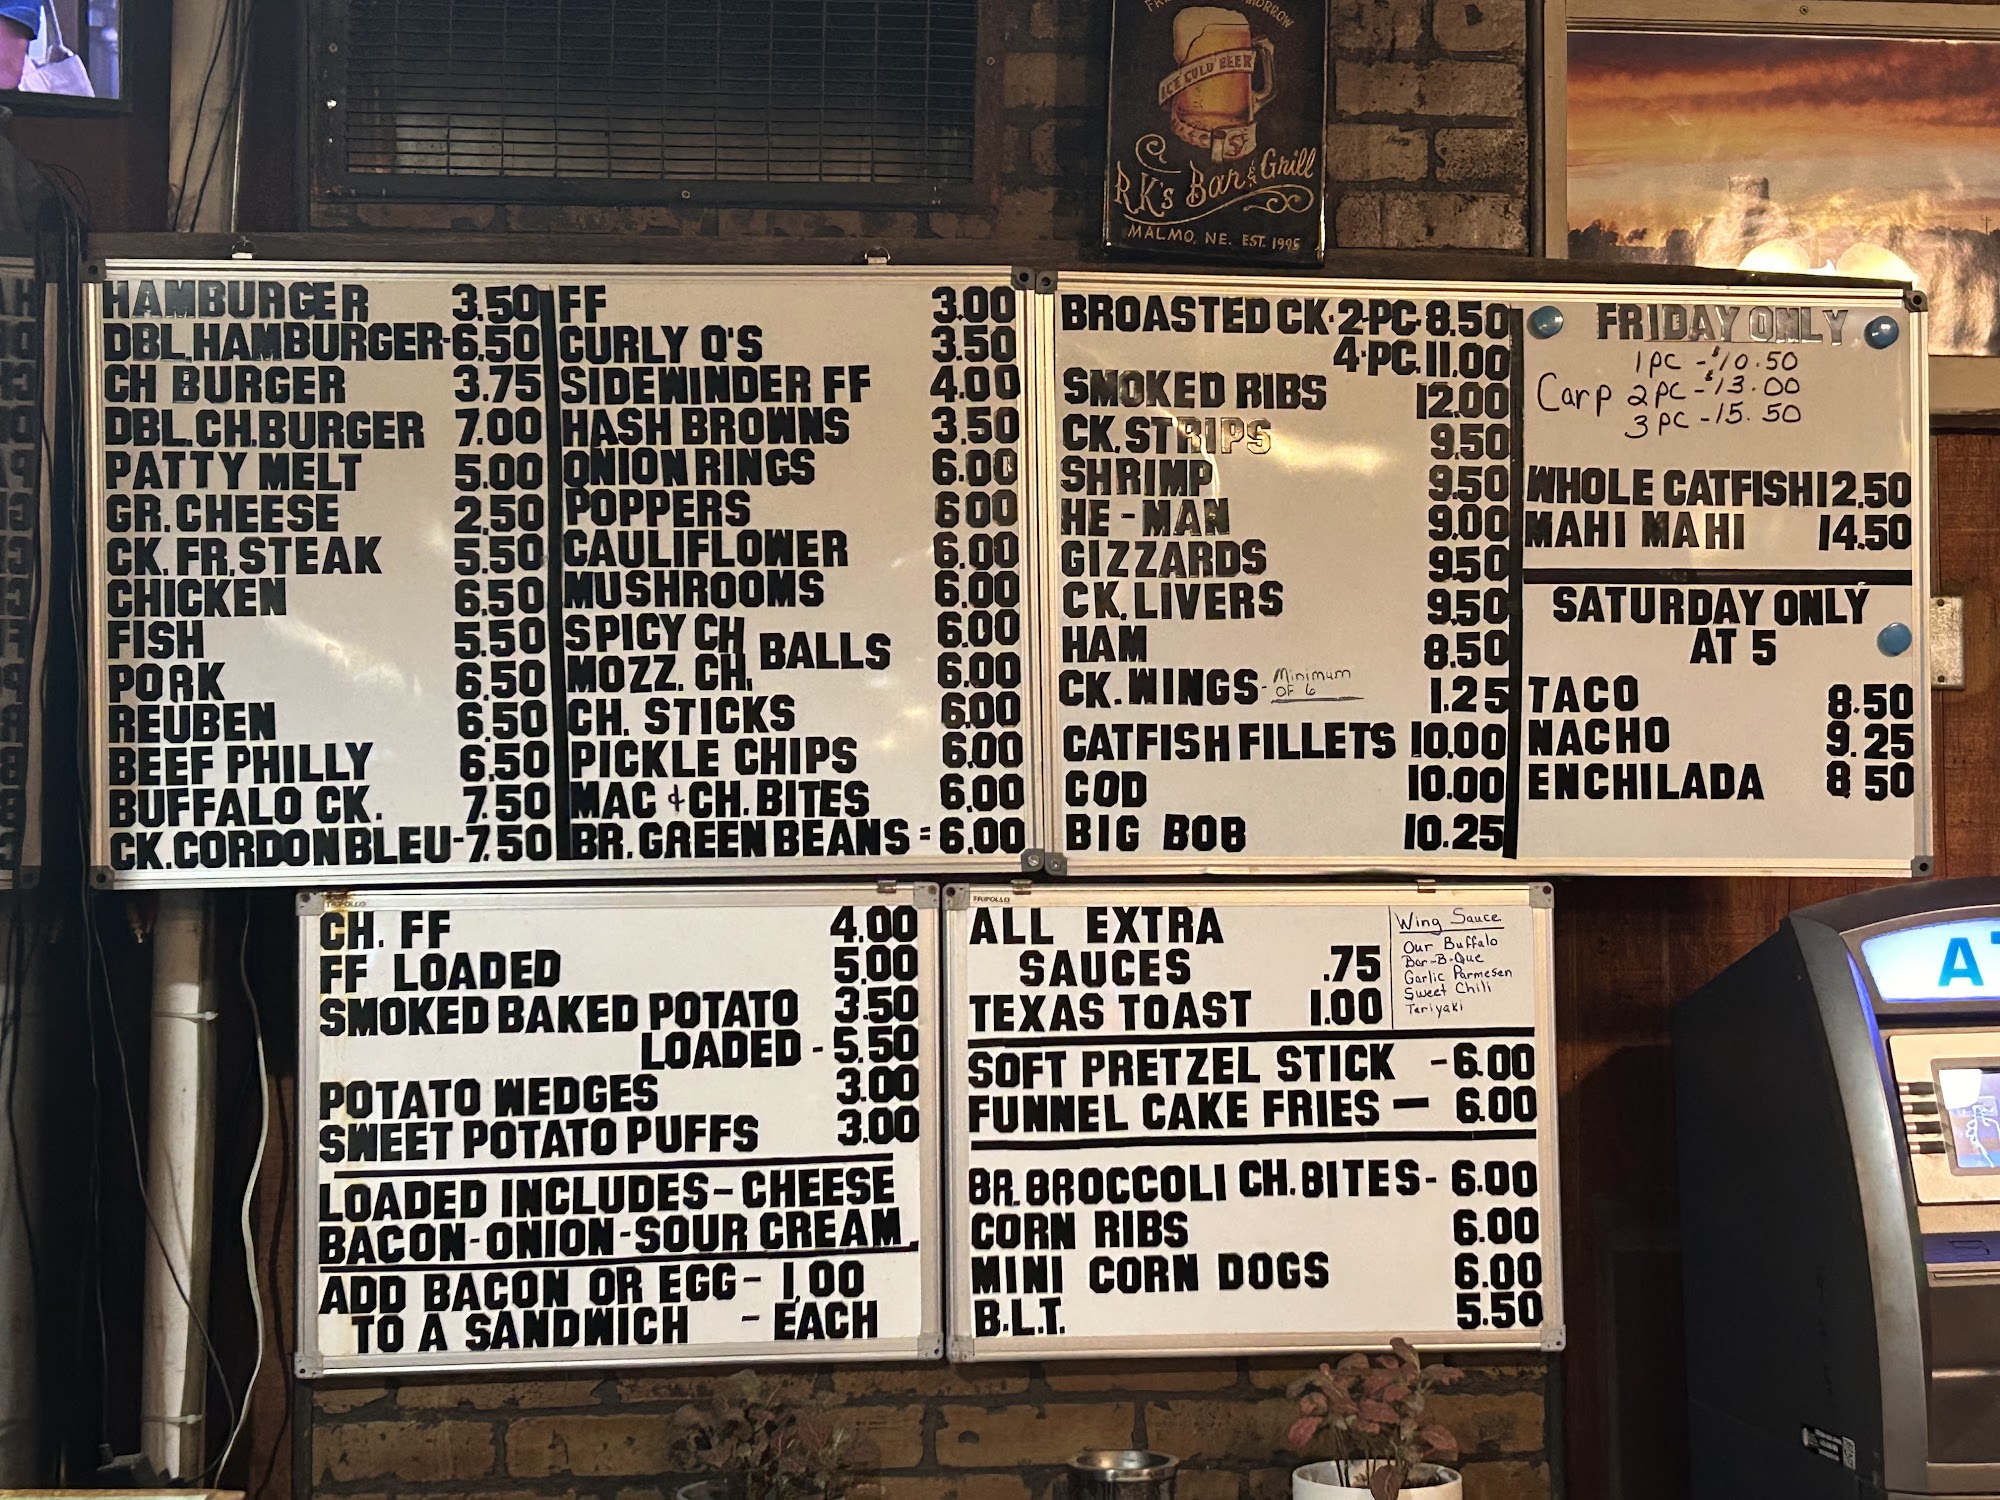 ICE COLD BEER
5¢
RK's Bar & Grill
MALMO, NE. EST. 1995
HAMBURGER 3.50
DBL.HAMBURGER-6.50
CH BURGER 3.75
DBL.CH.BURGER 7.00
PATTY MELT 5.00
GR.CHEESE 2.50
CK.FR.STEAK 5.50
CHICKEN 6.50
FISH 5.50
PORK 6.50
REUBEN 6.50
BEEF PHILLY 6.50
BUFFALO CK. 7.50
CK.CORDON BLEU-7.50
FF 3.00
CURLY Q'S 3.50
SIDEWINDER FF 4.00
HASH BROWNS 3.50
ONION RINGS 6.00
POPPERS 6 00
CAULIFLOWER 6.00
MUSHROOMS 6.00
SPICY CH BALLS 6.00
MOZZ. CH. 6.00
CH. STICKS 6.00
PICKLE CHIPS 6.00
MAC & CH. BITES 6.00
BR. GREEN BEANS = 6.00
BROASTED CK-2-PC-8.50
4-PC.11.00
SMOKED RIBS 12.00
CK.STRIPS 9.50
SHRIMP 9.50
HE-MAN 9.00
GIZZARDS 9.50
CK.LIVERS 9.50
HAM 8.50
CK.WINGS- Minimum OF 6 1.25
CATFISH FILLETS 10.00
COD 10.00
BIG BOB 10.25
FRIDAY ONLY
1 pc - $10.50
Carp 2 pc - $13.00
3 pc - 15.50
WHOLE CATFISH 12.50
MAHI MAHI 14.50
SATURDAY ONLY
AT 5
TACO 8.50
NACHO 9.25
ENCHILADA 8 50
CH. FF 4.00
FF LOADED 5.00
SMOKED BAKED POTATO 3.50
LOADED - 5.50
POTATO WEDGES 3.00
SWEET POTATO PUFFS 3.00
LOADED INCLUDES-CHEESE
BACON-ONION-SOUR CREAM.
ADD BACON OR EGG- 1.00
TO A SANDWICH - EACH
ALL EXTRA
SAUCES .75
TEXAS TOAST 1.00
Wing Sauce
Our Buffalo
Bar-B-Que
Garlic Parmesen
Sweet Chili
Teriyaki
SOFT PRETZEL STICK - 6.00
FUNNEL CAKE FRIES — 6.00
BR.BROCCOLI CH.BITES- 6.00
CORN RIBS 6.00
MINI CORN DOGS 6.00
B.L.T. 5.50